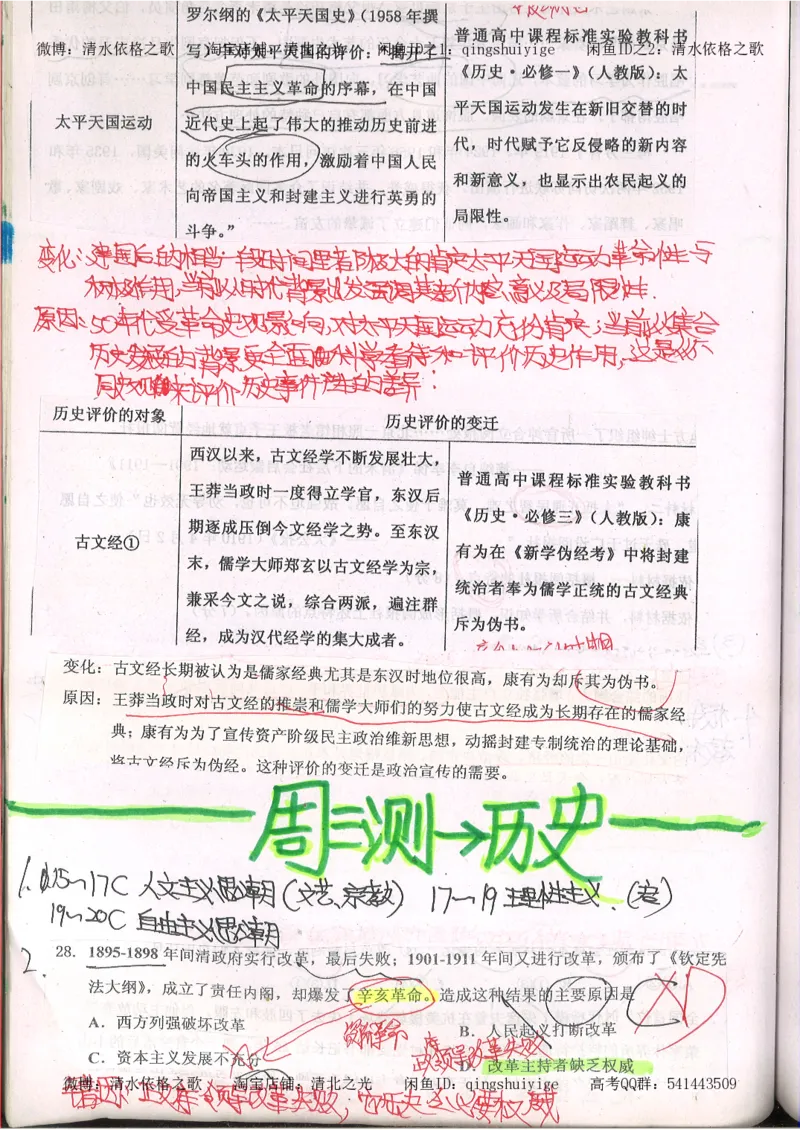 罗尔纲的《太平天国史》(1958年撰
写)中对太平天国的评价:“揭开了
中国民主主义革命的序幕,在中国
近代史上起了伟大的推动历史前进
的火车头的作用,激励着中国人民
向帝国主义和封建主义进行英勇的
斗争。”
太平天国运动
普通高中课程标准实验教科书
《历史·必修一》(人教版):太
平天国运动发生在新旧交替的时
代,时代赋予它反侵略的新内容
和新意义,也显示出农民起义的
局限性。
微博:清水依格之歌 淘宝店铺:清北之光 闲鱼ID之1:qingshuiyige 闲鱼ID之2:清水依格之歌
变化:建国后的相当一段时间里者阶极大的肯定太平天国运动革命性与
积极作用,当前以时代背景出发强调其新价值、意义及局限性.
原因:50年代受革命史观影响,对太平天国运动充份肯定;当前以集合
历史发展的背景要全面的科学看待和评价历史作用,这是从不
同史观来评价历史事件产生的差异:
历史评价的对象 历史评价的变迁
古文经①
西汉以来,古文经学不断发展壮大,
王莽当政时一度得立学官,东汉后
期逐成压倒今文经学之势。至东汉
末,儒学大师郑玄以古文经学为宗,
兼采今文之说,综合两派,遍注群
经,成为汉代经学的集大成者。
普通高中课程标准实验教科书
《历史·必修三》(人教版):康
有为在《新学伪经考》中将封建
统治者奉为儒学正统的古文经典
斥为伪书。
变化:古文经长期被认为是儒家经典尤其是东汉时地位很高,康有为却斥其为伪书。
原因:王莽当政时对古文经的推崇和儒学大师们的努力使古文经成为长期存在的儒家经
典;康有为为了宣传资产阶级民主政治维新思想,动摇封建专制统治的理论基础,
将古文经斥为伪经。这种评价的变迁是政治宣传的需要。
周三测→历史
1. 15~17C 人文主义思潮(文艺、宗教) 17~19 理性主义.(启)
19~20C 自由主义思潮
2.
28. 1895-1898年间清政府实行改革,最后失败;1901-1911年间又进行改革,颁布了《钦定宪
法大纲》,成立了责任内阁,却爆发了辛亥革命。造成这种结果的主要原因是
A. 西方列强破坏改革
B. 人民起义打断改革
C. 资本主义发展不充分
D. 改革主持者缺乏权威
资产革命
政领导改革失败
微博:清水依格之歌 淘宝店铺:清北之光 闲鱼ID:qingshuiyige 高考QQ群:541443509